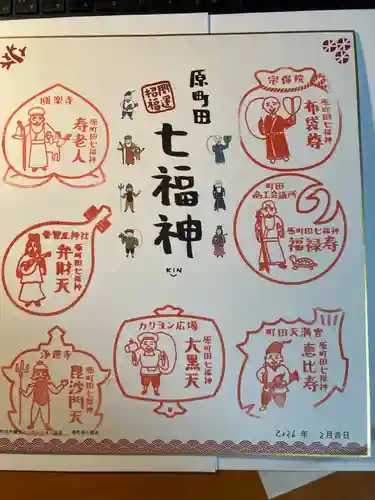 原町田
七福神
開運
招福
KIN
宗保院
原町田七福神
布袋尊
町田
商工会議所
原町田七福神
福禄寿
町田天満宮
原町田七福神
恵比寿
カリヨン広場
原町田七福神
大黒天
浄運寺
原町田七福神
毘沙門天
原町田七福神
弁財天
原町田七福神
寿老人
2026年 2月吉日